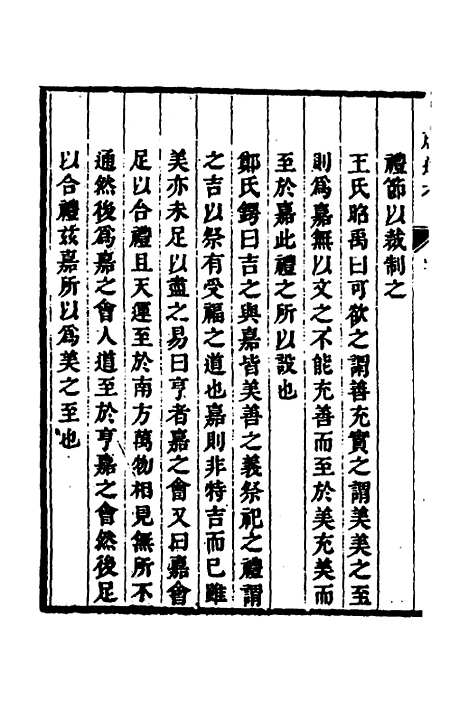 禮節以裁制之
王氏昭禹曰可欲之謂善充實之謂美美之至
則爲嘉無以文之不能充善而至於美充美而
至於嘉此禮之所以設也
鄭氏鍔曰吉之與嘉皆美善之義祭祀之禮謂
之吉以祭有受福之道也嘉則非特吉而已雖
美亦未足以盡之易曰亨者嘉之會又曰嘉會
足以合禮且天運至於南方萬物相見無所不
通然後爲嘉之會人道至於亨嘉之會然後足
以合禮玆嘉所以爲美之至也